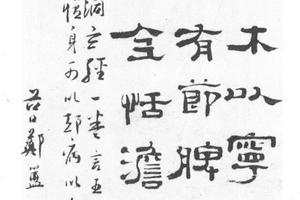 木以寧
有節脾
全恬澹
洞玄經一卷言五
身可以却病以
谷口鄭簠